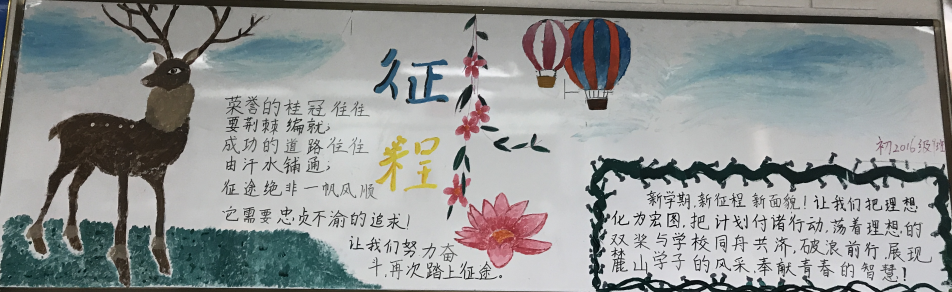 征程
荣誉的桂冠往往
要荆棘编就；
成功的道路往往
由汗水铺通；
征途绝非一帆风顺
它需要忠贞不渝的追求！
让我们努力奋
斗，再次踏上征途。
初2016级
新学期，新征程，新面貌！让我们把理想
化为宏图，把计划付诸行动，荡着理想的
双桨与学校同舟共济，破浪前行，展现
麓山学子的风采，奉献青春的智慧！